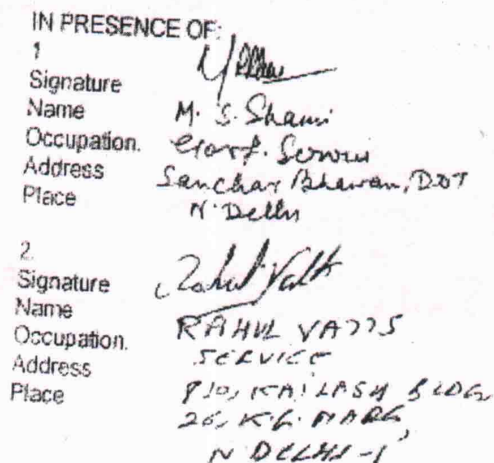 IN PRESENCE OF:
1
Signature
Name M. S. Shami
Occupation. Govt. Service
Address Sanchar Bhawan, DOT
Place N. Delhi
2.
Signature Rahul Vatts
Name RAHUL VATTS
Occupation. SERVICE
Address 810, KAILASH BLDG,
Place 26, K.G. MARG
N DELHI-1